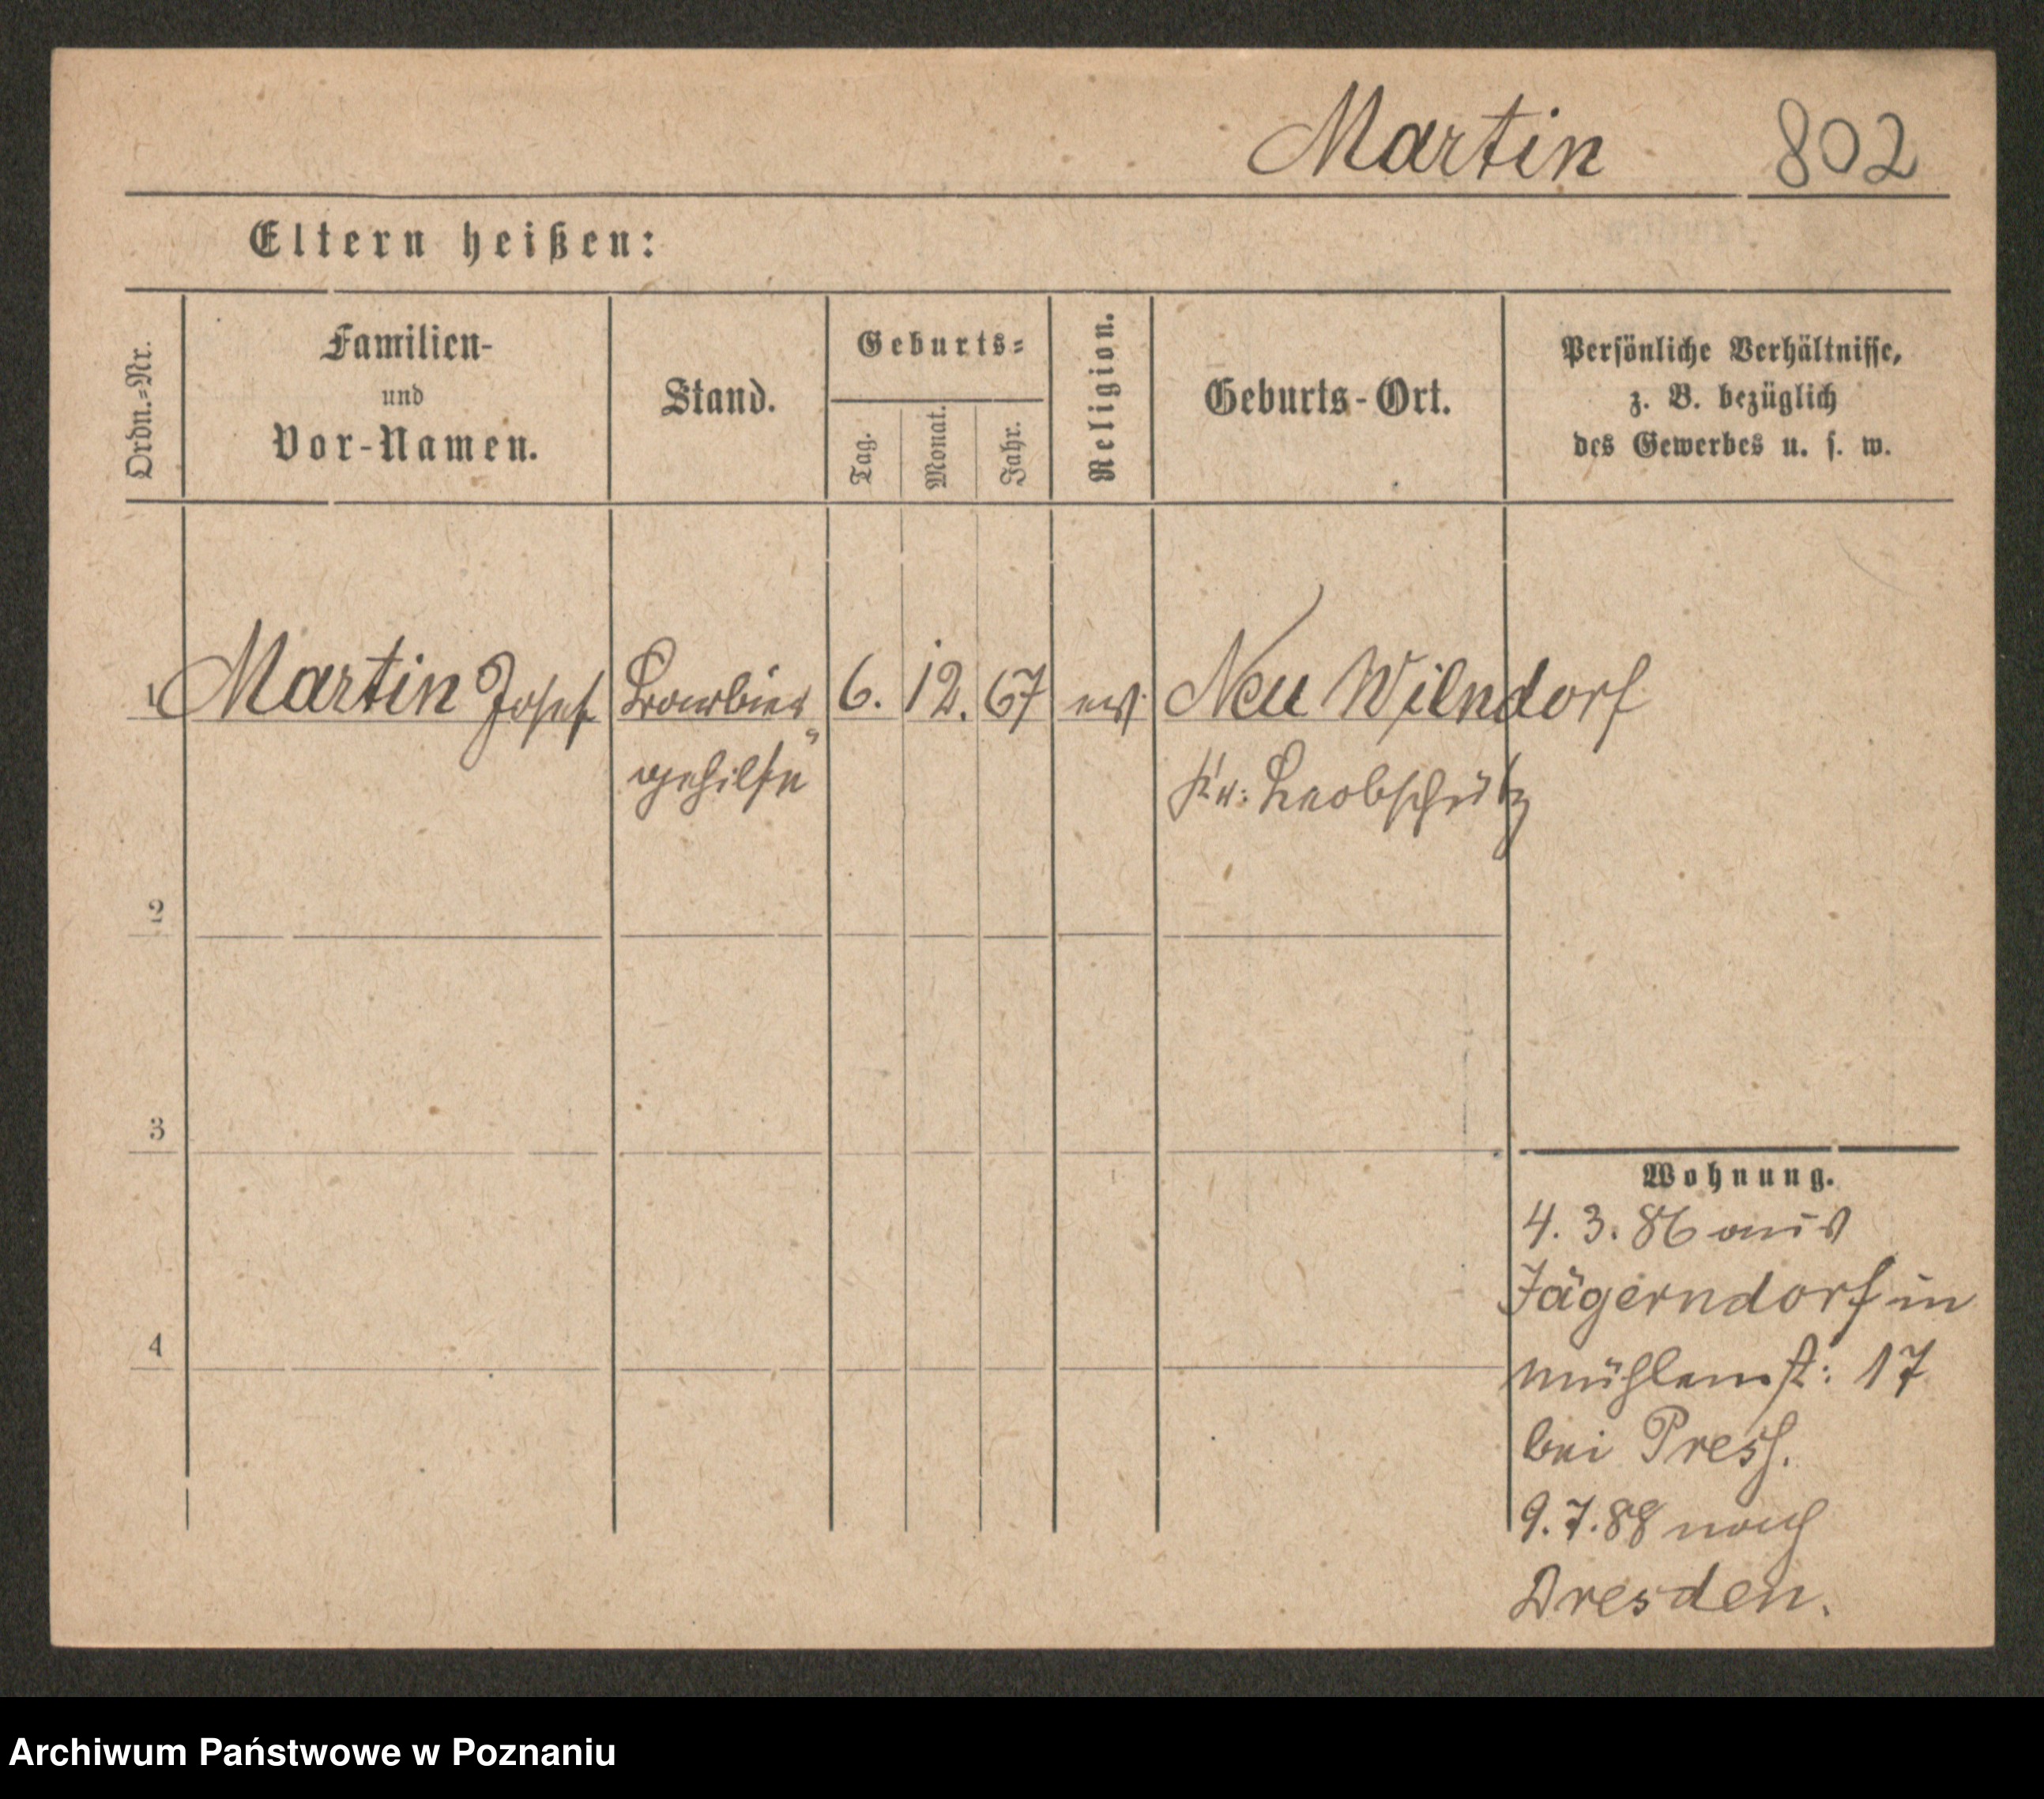 Martin 802
Eltern heißen:
Ordn.=Nr.
Familien-
und
Vor-Namen.
Stand.
Geburts=
Tag.
Monat.
Jahr.
Religion.
Geburts-Ort.
Persönliche Verhältnisse,
z. B. bezüglich
des Gewerbes u. s. w.
1 Martin Josef Barbier 6. 12. 67 Neu Wilndorf
gehilfe Kr: Leobschütz
2
3
4
Wohnung.
4. 3. 86 aus
Jägerndorf in
Mühlenst: 17
bei Presch.
9. 7. 88 nach
Dresden.
Archiwum Państwowe w Poznaniu